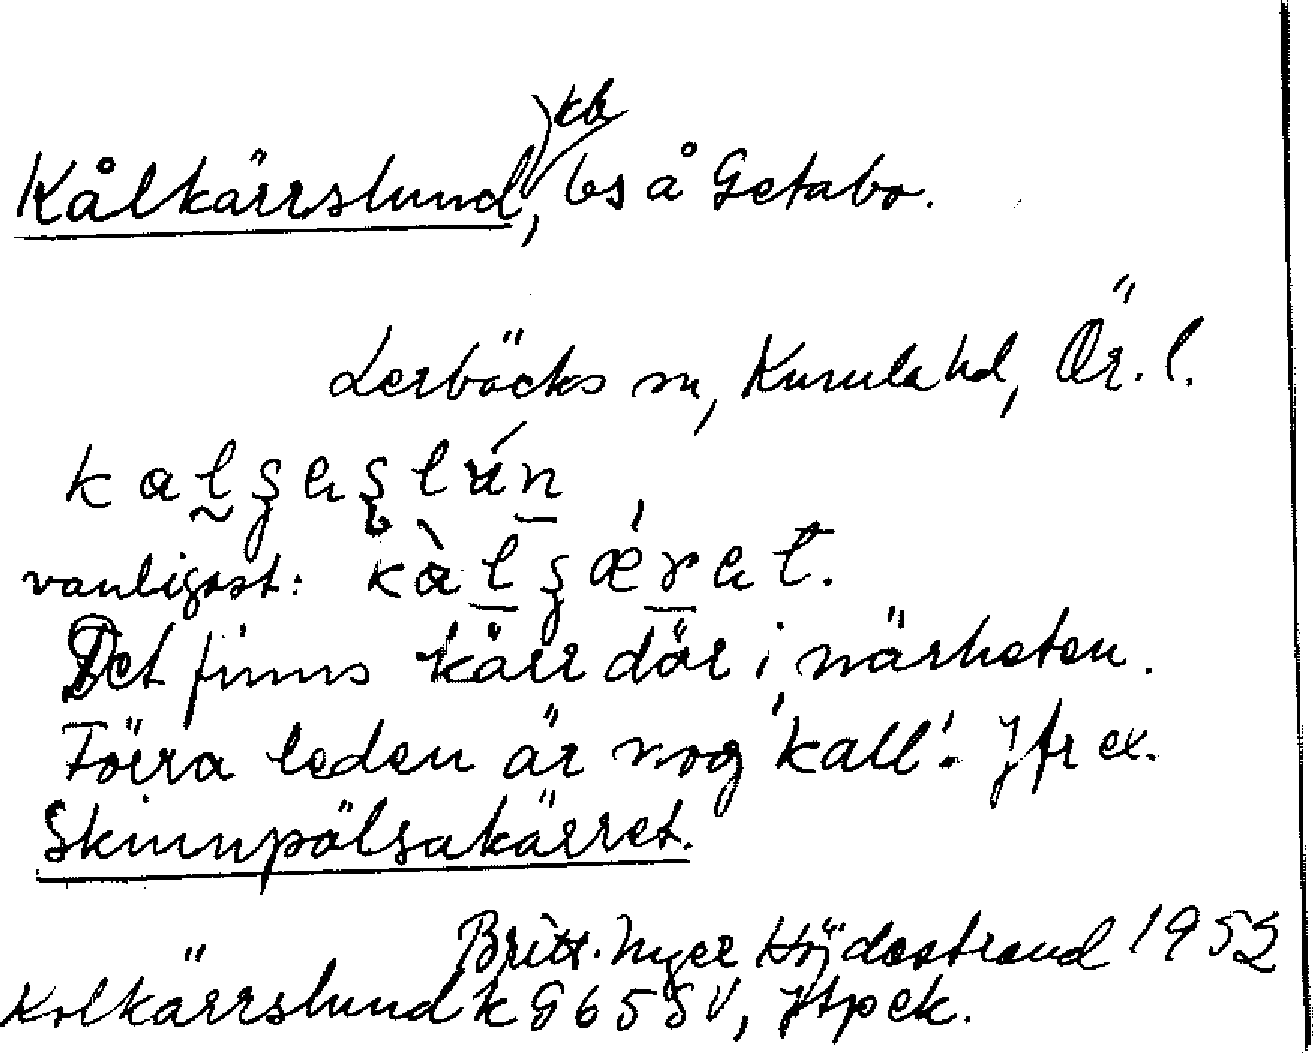 kb
Kålkärrslund, bs å Getabo.
Lerbäcks sn, Kumla hd, Ör. l.
vanligast:
Det finns kärr där i närheten.
Förra leden är nog 'kall'. Jfr ex.
Skinnpälsakärret.
Britt. Inger Höjdestrand 1952
Kolkärrslund k G 65 SV, Htpek.